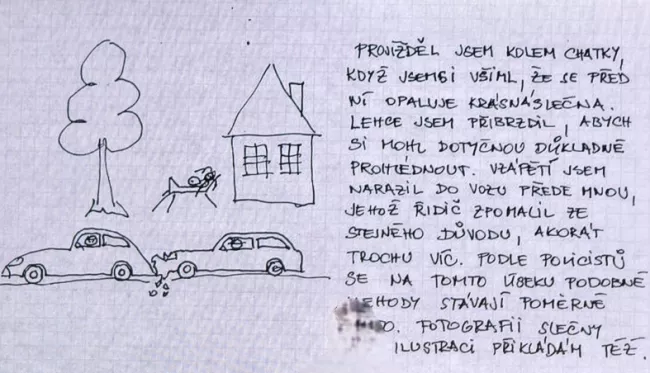 PROJÍŽDĚL JSEM KOLEM CHATKY,
KDYŽ JSEM SI VŠIML, ŽE SE PŘED
NÍ OPALUJE KRÁSNÁ SLEČNA.
LEHCE JSEM PŘIBRZDIL, ABYCH
SI MOHL DOTYČNOU DŮKLADNĚ
PROHLÉDNOUT. VZÁPĚTÍ JSEM
NARAZIL DO VOZU PŘEDE MNOU,
JEHOŽ ŘIDIČ ZPOMALIL ZE
STEJNÉHO DŮVODU, AKORÁT
TROCHU VÍC. PODLE POLICISTŮ
SE NA TOMTO ÚSEKU PODOBNÉ
NEHODY STÁVAJÍ POMĚRNĚ
FOTOGRAFII SLEČNY
ILUSTRACI PŘIKLÁDÁM TÉŽ.